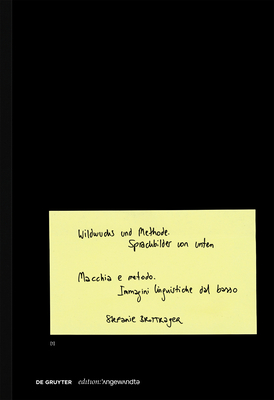 Wildwuchs und Methode.
Sprachbilder von unten
Macchia e metodo.
Immagini linguistiche dal basso
Stefanie
(1)
DE GRUYTER edition:'ʌngewʌndtə